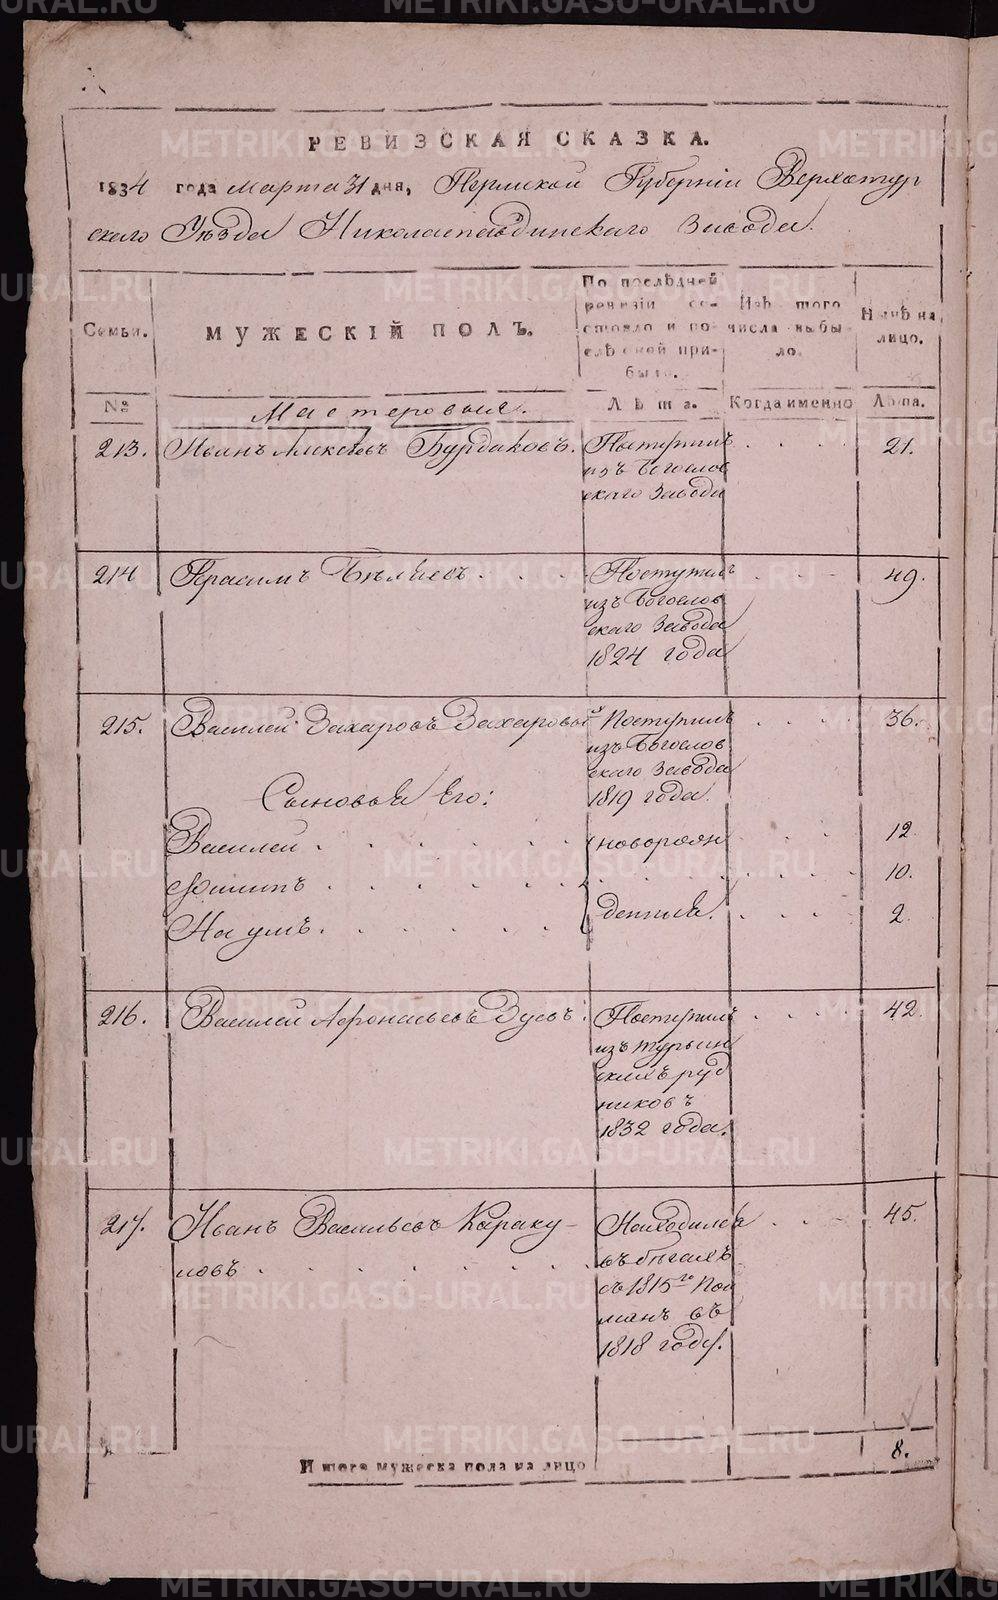 РЕВИЗСКАЯ СКАЗКА.
1834 года марта 31 дня, Пермской Губерніи Верхотур
скаго Уѣзда Николаепавдинскаго Завода.
Семьи.
МУЖЕСКІЙ ПОЛЪ.
По послѣдней
ревизіи со-
стояло и по-
слѣ оной при-
было.
Изъ того
числа выбы-
ло.
Нынѣ на
лицо.
№
Мастеровыя.
Лѣта.
Когда именно
Лѣта.
213. Иванъ Алексѣевъ Бурдаковъ. Поступилъ 21.
изъ Богослов
скаго Завода
214 Герасимъ Бѣляевъ Поступилъ 49.
изъ Богослов
скаго Завода
1824 года
215. Василей Захаровъ Захаровый Поступилъ 36.
изъ Богослов
скаго Завода
1819 года.
Сыновья Его:
Василей новорож 12
Филипъ 10.
Наумъ денныя. 2
216. Василей Афонасьевъ Зуевъ: Поступилъ 42.
изъ турьин
скихъ руд
никовъ
1832 года.
217. Иванъ Васильевъ Караку- Находился 45.
ловъ въ бѣгахъ
съ 1815го Пой
манъ въ
1818 году.
Итого мужеска пола на лицо 8.
METRIKI.GASO-URAL.RU